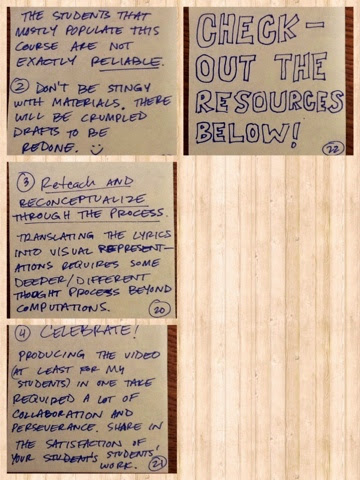 THE STUDENTS THAT
MOSTLY POPULATE THIS
COURSE ARE NOT
EXACTLY RELIABLE.
② DON'T BE STINGY
WITH MATERIALS. THERE
WILL BE CRUMPLED
DRAFTS TO BE
REDONE.
CHECK-
OUT THE
RESOURCES
BELOW!
22
③ Reteach AND
RECONCEPTUALIZE
THROUGH THE PROCESS.
TRANSLATING THE LYRICS
INTO VISUAL REPRESENT-
ATIONS REQUIRES SOME
DEEPER/DIFFERENT
THOUGHT PROCESS BEYOND
COMPUTATIONS.
20
④ CELEBRATE!
PRODUCING THE VIDEO
(AT LEAST FOR MY
STUDENTS) IN ONE TAKE
REQUIRED A LOT OF
COLLABORATION AND
PERSEVERANCE. SHARE IN
THE SATISFACTION OF
YOUR STUDENTS' STUDENTS'
WORK.
21